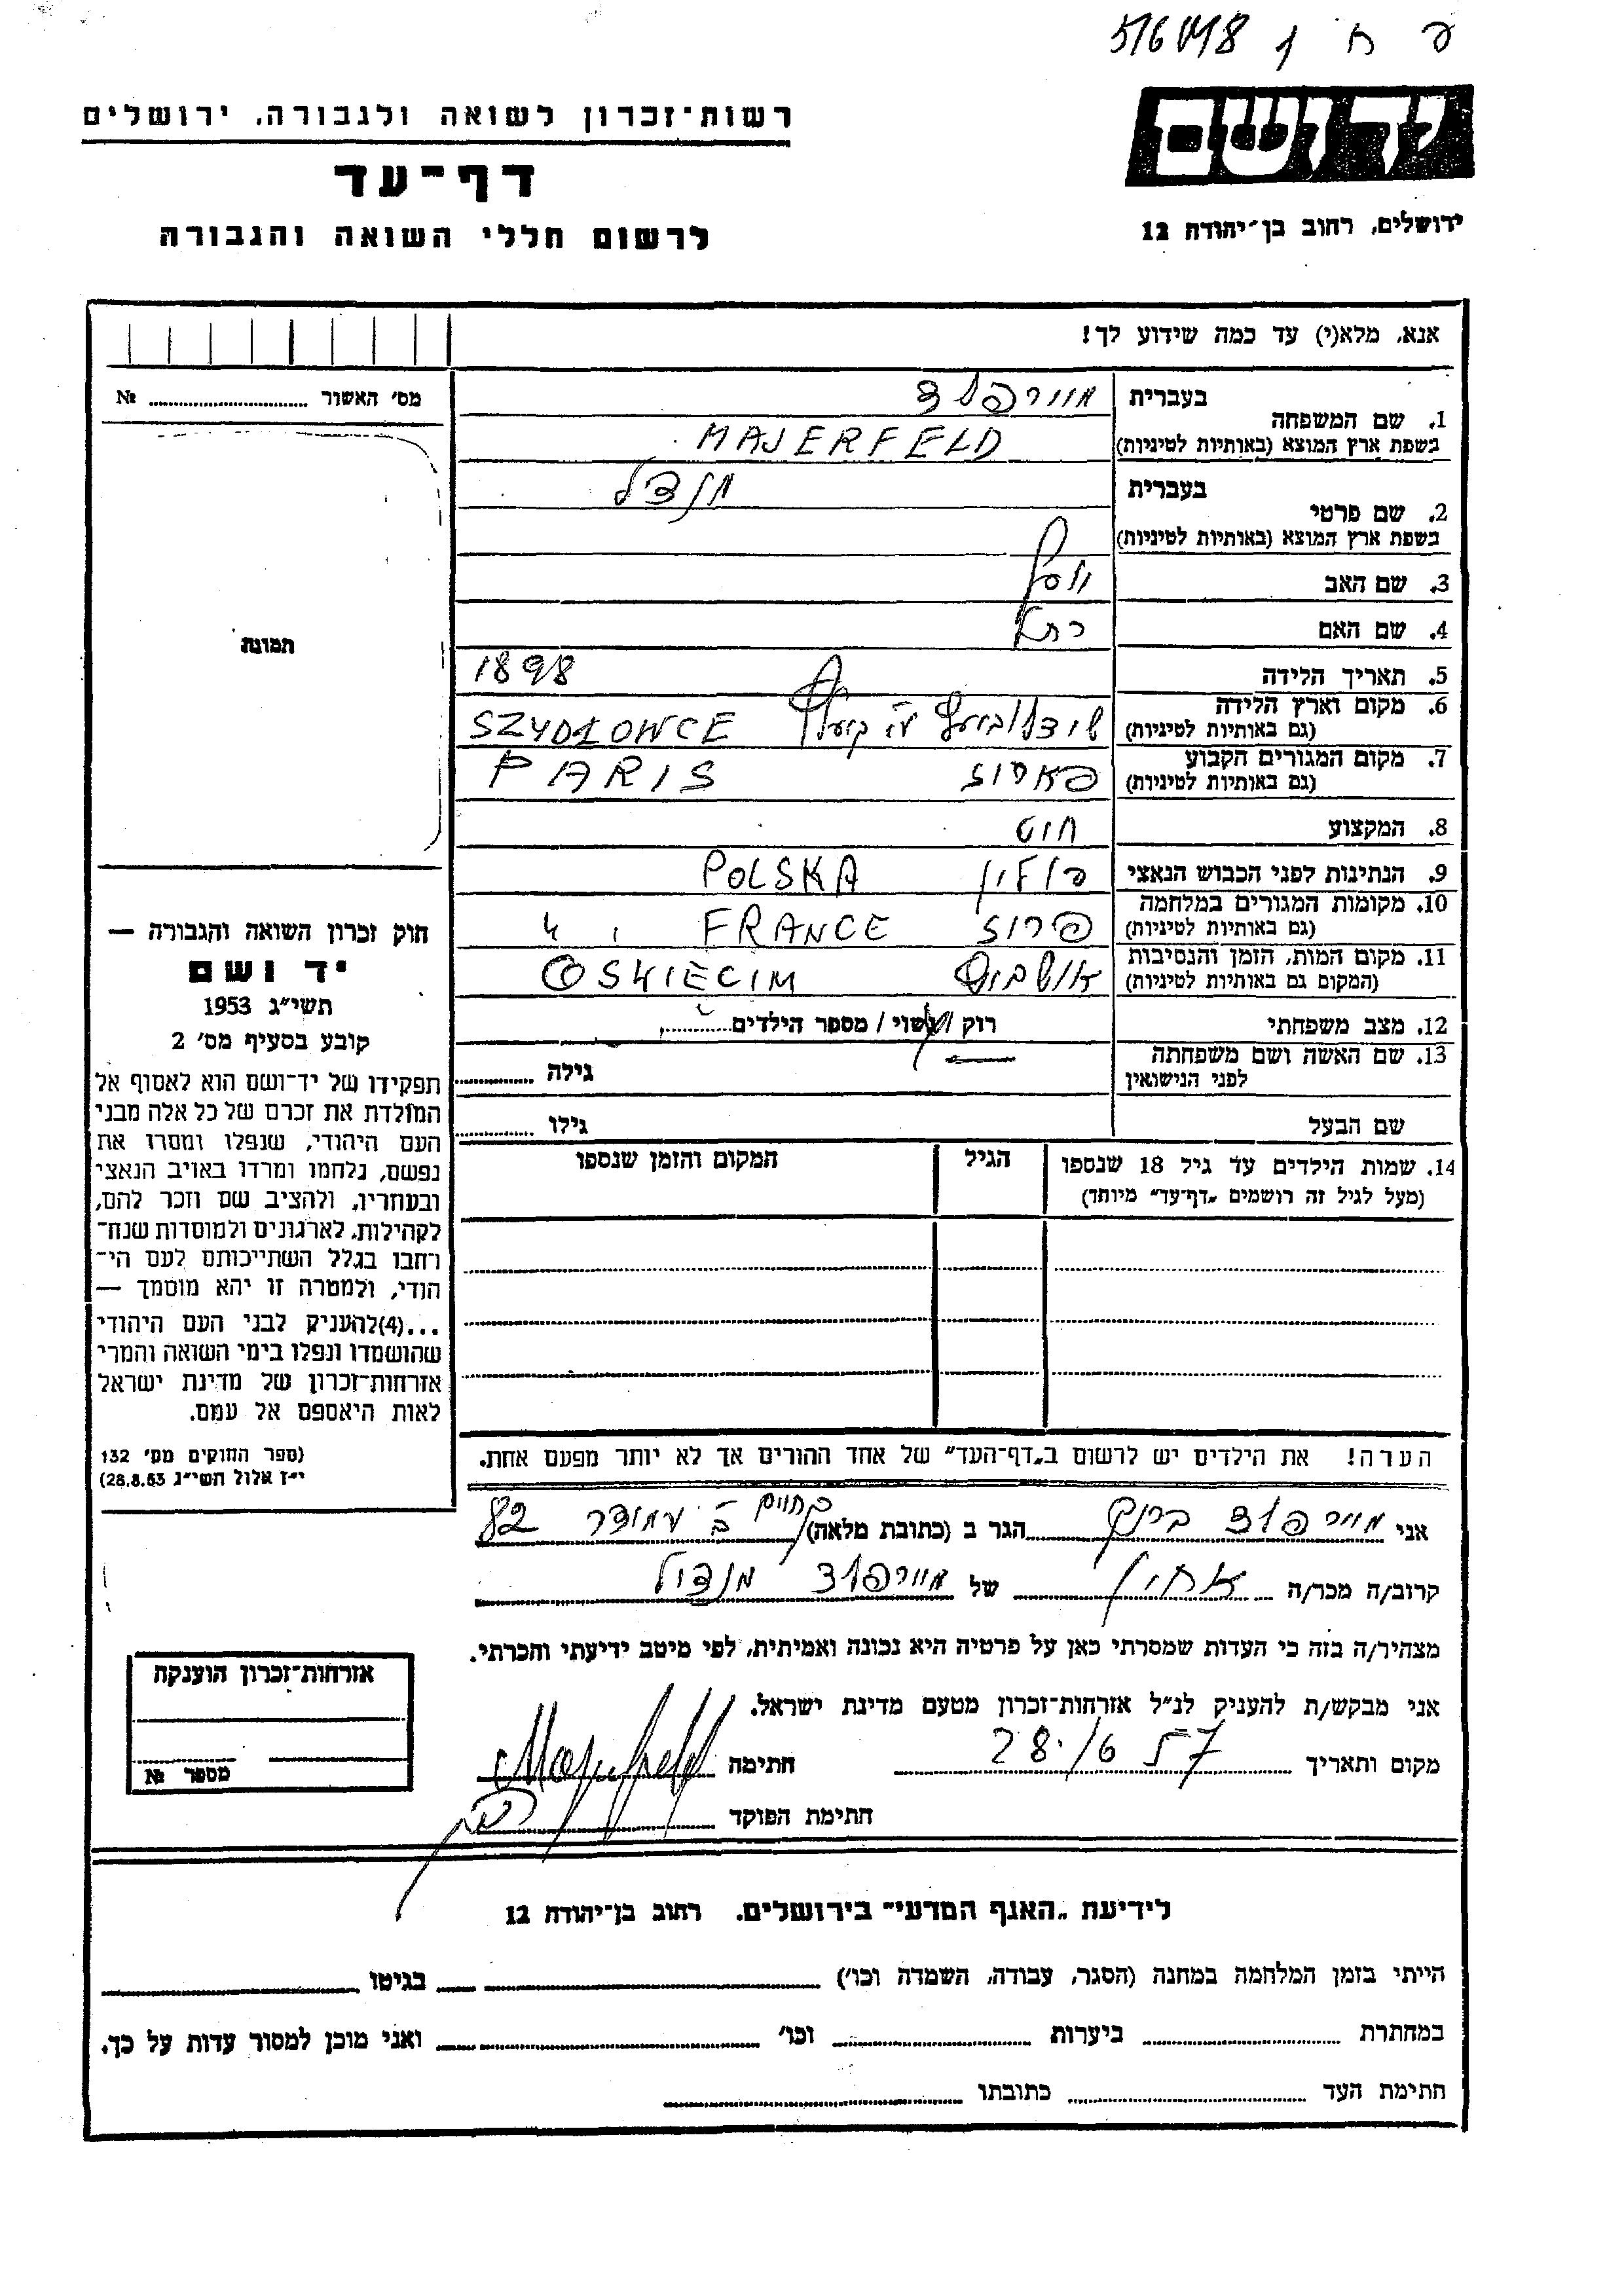 516418
ידושם
רשות־זכרון לשואה ולגבורה, ירושלים
דף־עד
לרשום חללי השואה והגבורה
ירושלים, רחוב בן־יהודה 12
אנא, מלא(י) עד כמה שידוע לך!
מס׳ האשור № 
תמונה
1. שם המשפחה
בעברית
מיירפלד
בשפת ארץ המוצא (באותיות לטיניות)
MAJERFELD
2. שם פרטי
בעברית
מנדל
בשפת ארץ המוצא (באותיות לטיניות)
3. שם האב
יוסף
4. שם האם
5. תאריך הלידה 1898
6. מקום וארץ הלידה
(גם באותיות לטיניות)
SZYDŁOWCE
7. מקום המגורים הקבוע
(גם באותיות לטיניות)
פאריז PARIS
8. המקצוע
חיט
9. הנתינות לפני הכבוש הנאצי
פולין POLSKA
10. מקומות המגורים במלחמה
(גם באותיות לטיניות)
פריז FRANCE
11. מקום המות, הזמן והנסיבות
(המקום גם באותיות לטיניות)
אושביץ OSWIECIM
12. מצב משפחתי
רוק / נשוי / מספר הילדים
13. שם האשה ושם משפחתה
לפני הנישואין
גילה
שם הבעל
גילו
14. שמות הילדים עד גיל 18 שנספו
(מעל לגיל זה רושמים „דף־עד״ מיוחד)
הגיל
המקום והזמן שנספו
הערה! את הילדים יש לרשום ב„דף־העד״ של אחד ההורים אך לא יותר מפעם אחת.
חוק זכרון השואה והגבורה —
יד ושם
תשי״ג 1953
קובע בסעיף מס׳ 2
תפקידו של יד־ושם הוא לאסוף אל
המולדת את זכרם של כל אלה מבני
העם היהודי, שנפלו ומסרו את
נפשם, נלחמו ומרדו באויב הנאצי
ובעוזריו, ולהציב שם וזכר להם,
לקהילות, לארגונים ולמוסדות שנח־
רחבו בגלל השתייכותם לעם הי־
הודי, ולמטרה זו יהא מוסמך —
...(4)להעניק לבני העם היהודי
שהושמדו ונפלו בימי השואה והמרי
אזרחות־זכרון של מדינת ישראל
לאות היאספם אל עמם.
(ספר החוקים מס׳ 132
י״ז אלול תשי״ג 28.8.53)
אני מיירפלד הגר ב (כתובת מלאה) 82
קרוב/ה מכר/ה של מיירפלד מנדל
מצהיר/ה בזה כי העדות שמסרתי כאן על פרטיה היא נכונה ואמיתית, לפי מיטב ידיעתי והכרתי.
אני מבקש/ת להעניק לנ״ל אזרחות־זכרון מטעם מדינת ישראל.
מקום ותאריך 28/6 57 חתימה Majerfeld
חתימת הפוקד
אזרחות־זכרון הוענקה
מספר №
לידיעת „האגף המדעי״ בירושלים. רחוב בן־יהודה 12
הייתי בזמן המלחמה במחנה (הסגר, עבודה, השמדה וכו׳) בגיטו
במחתרת ביערות וכו׳ ואני מוכן למסור עדות על כך.
חתימת העד כתובתו